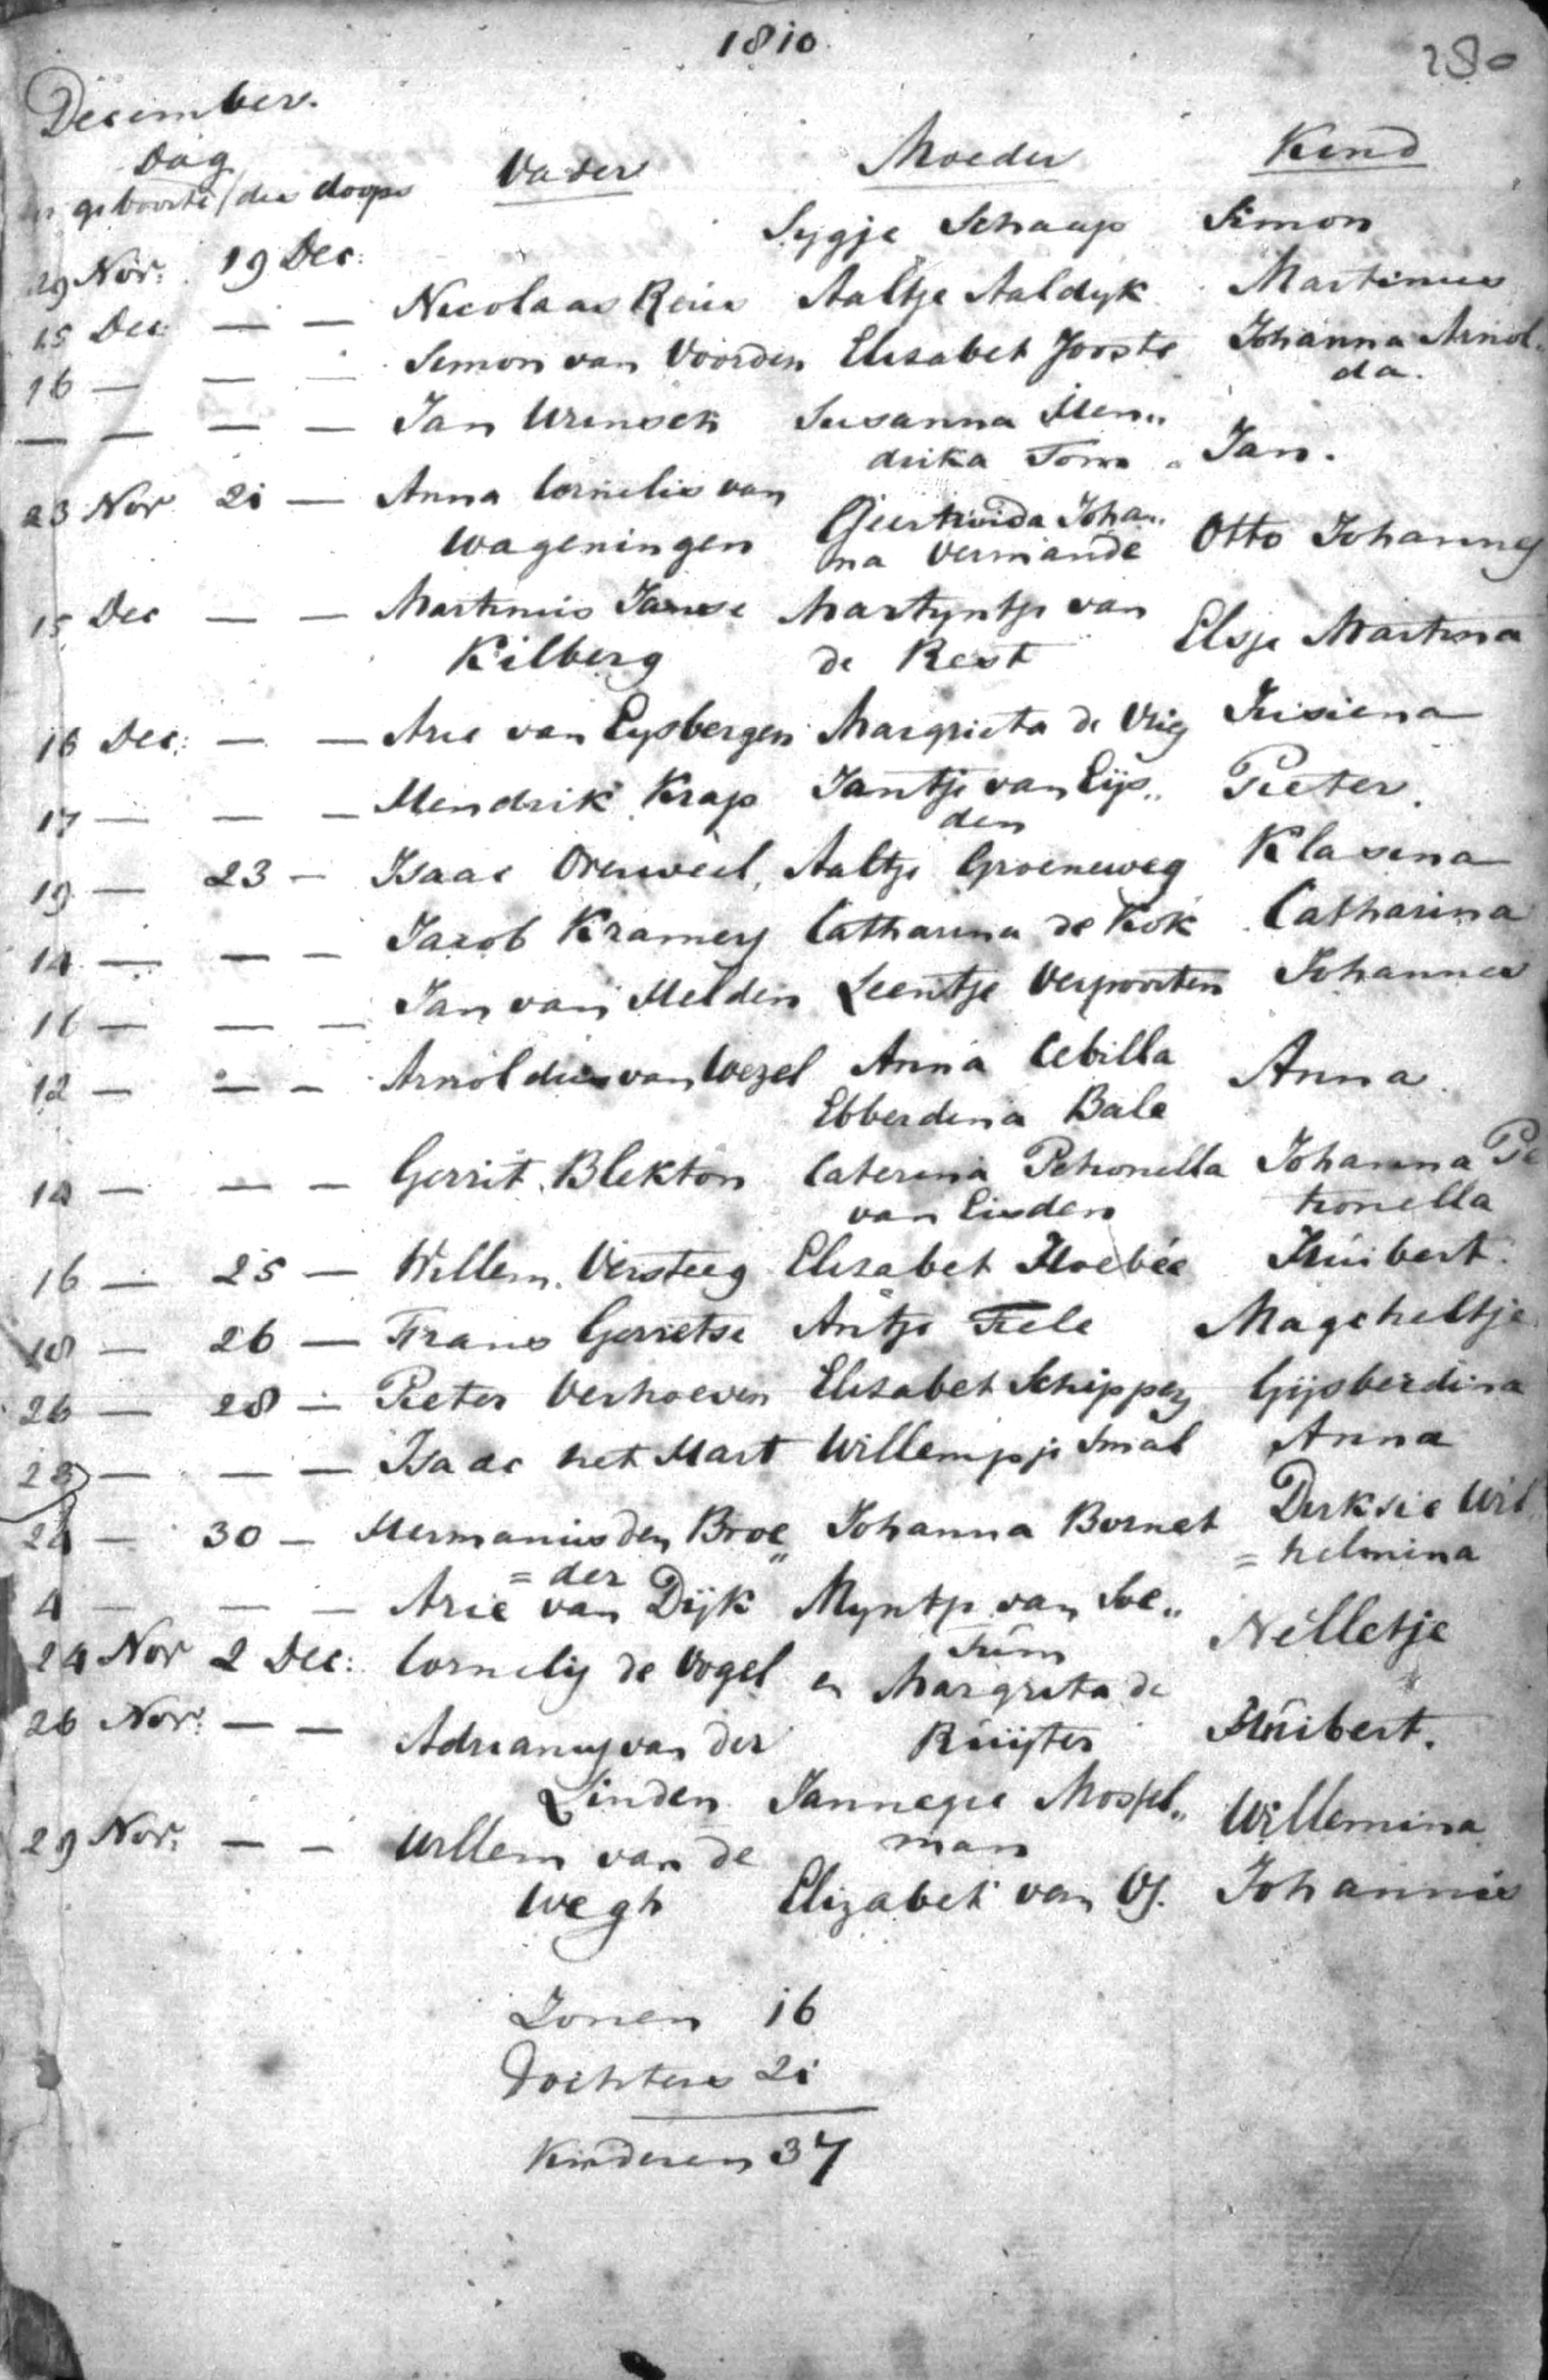 1810
280
December.
Dag
der geboorte / des doops Vader Moeder Kind
29 Nov: 19 Dec: Sygje Schaap Simon
15 Dec — — Nicolaas Reus Aaltje Aaldyk Martinus
16 — — — Simon van Voorden Elisabet Jooste Johanna Arnol„
da.
— — — — Jan Urensck Susanna Hen„
drika Tom Jan.
23 Nov 21 — Anna Cornelis van Geertruida Joha„
Wageningen na Vermande Otto Johannes
15 Dec — — Martinus Janse Martyntje van
Kilberg de Rest Elsje Martina
16 Dec: — — Arie van Eysbergen Margrieta de Vrij Jusiena
17 — — — Hendrik Krap Jantje van Eijs„ Pieter.
den
19 — 23 — Isaac Oreweel, Aaltje Groeneweg Klasina
14 — — — Jacob Kramers Catharina de Kok Catharina
16 — — — Jan van Helden Leentje Verpoorten Johannes
12 — — — Arnoldus van Wezel Anna Cebilla
Ebberdina Bale Anna
14 — — — Gerrit Blekton Caterina Petronella Johanna Pe
van Eisden tronella
16 — 25 — Willem Versteeg Elisabet Hoebée Huibert.
18 — 26 — Frans Gerretse Antje Fiele Magcheltje
26 — 28 — Pieter Verhoeven Elisabet Schippers Gijsberdina
23 — — — Isaac het Hart Willempje Smal Anna
24 — 30 — Hermanus den Broe„ Johanna Bornet Derksie Wil„
= der = helmina
4 — — — Arie van Dijk Myntje van Soe„
tum Nelletje
24 Nov 2 Dec: Cornelis de Vogel en Margreta de
Ruijter Huibert.
26 Nov: — — Adrianus van der
Linden Jannegie Mossel„
man Willemina
29 Nov: — — Willem van de
Wegh Elizabet van Os. Johannis
Zonen 16
Dochters 21
Kinderen 37